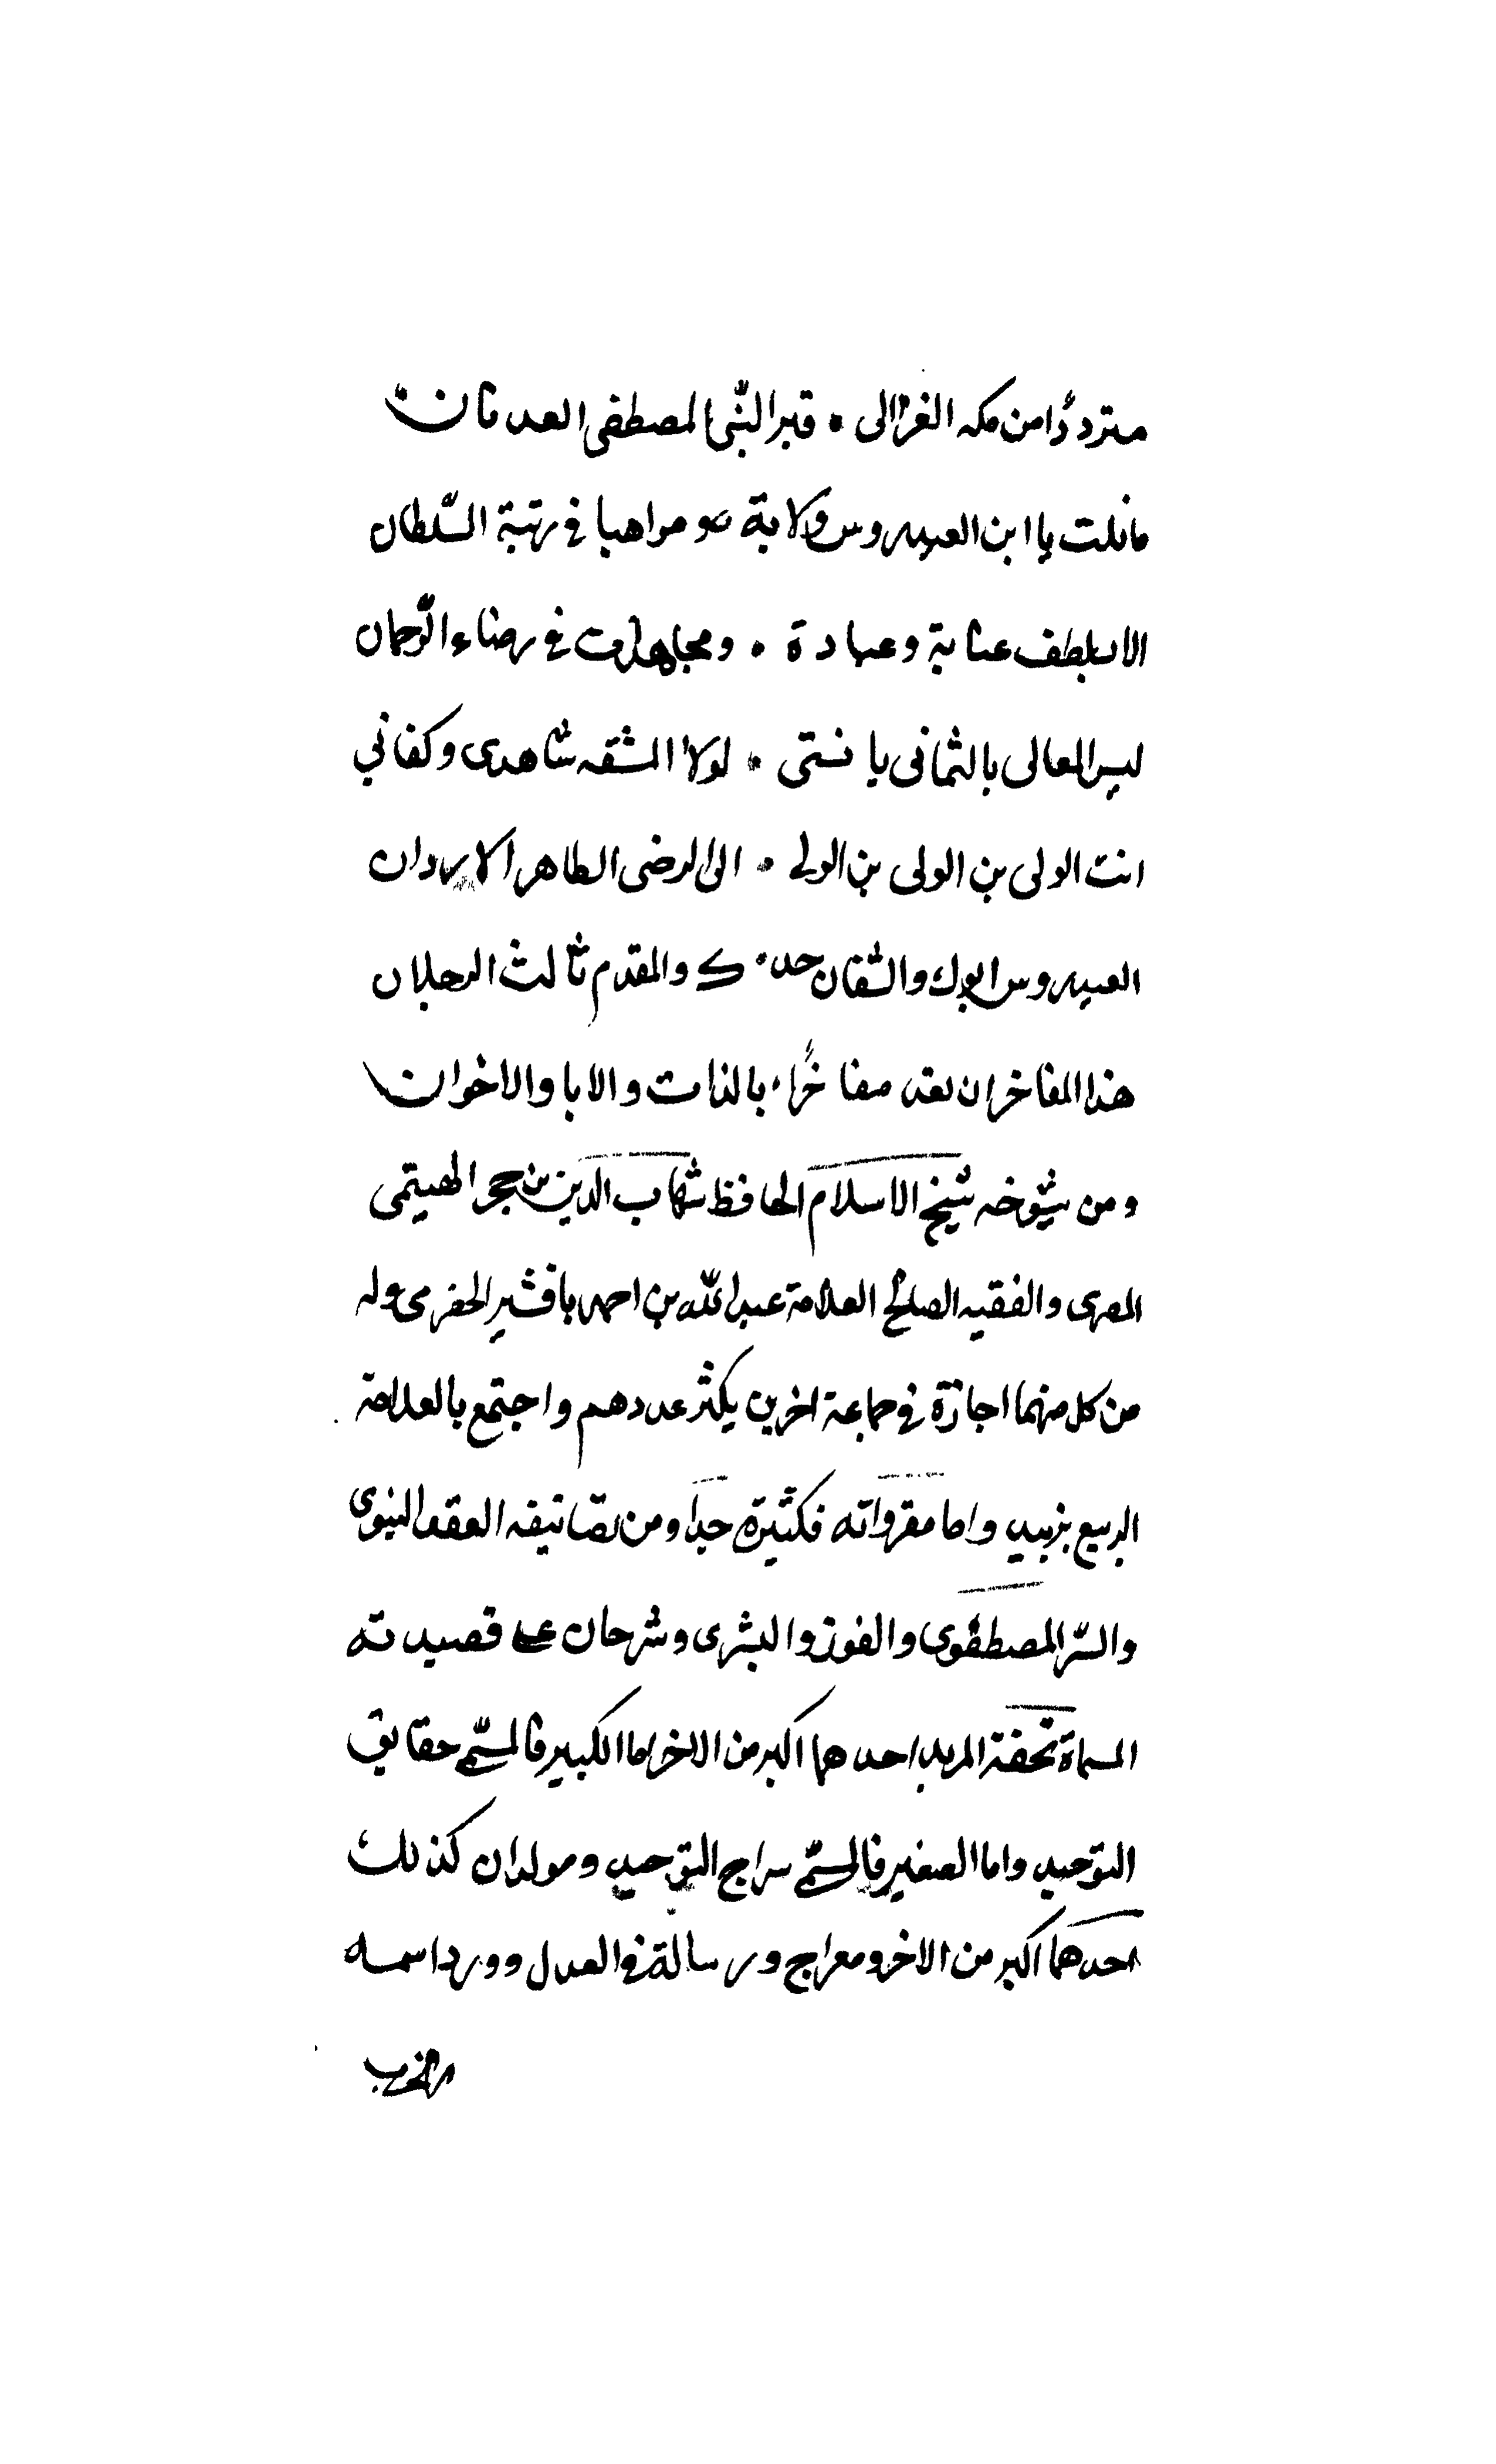 مترددًا من مكه الغرا الى ۰ قبر النّبى المصطفى العدنان
ما نلت يا ابن العيدروس ولاية ومراهبا في رتبة السّلطان
الا بلطف عناية وعبادة ۰ ومجاهدات في رضاء الرّحمان
ليس المعالى بالثمانى يا فتى ۰ لولا المشقه شاهدى وكفاني
انت الولى بن الولى بن الولى ۰ الى الرضى الطاهر الاردان
العيدروس ابوك والسّقاف جد۰ك والمقدم ثالث الرجلان
هذا المفاخر ان تعد مفاخرًا ۰ بالذات والابا والاخوان
ومن شيوخه شيخ الاسلام الحافظ شهاب الدين بن حجر الهيتمى
المصرى والفقيه الصالح العلامة عبد اللّه بن احمد باقشير الحضرمى وله
من كل منهما اجازة في جماعة اخرين يكثر عددهم واجتمع بالعلامة
الربيع بزبيد واما مقرواته فكثيرة جدا ومن تصانيفه العقد النبوى
والسّر المصطفوى والفوز والبشرى وشرحان على قصيدته
المسماة تحفة المريد احدهما اكبر من الاخر اما الكبير فالمسمّى حقايق
التوحيد واما الصغير فالمسمّى سراج التوحيد ومولدان كذلك
احدهما اكبر من الاخر ومعراج ورسالة في العدل وورد اسمه